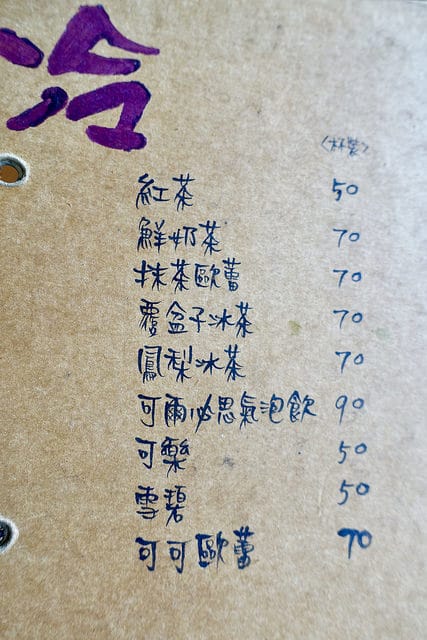 冷
(杯裝)
紅茶 50
鮮奶茶 70
抹茶歐蕾 70
覆盆子冰茶 70
鳳梨冰茶 70
可爾必思氣泡飲 90
可樂 50
雪碧 50
可可歐蕾 70